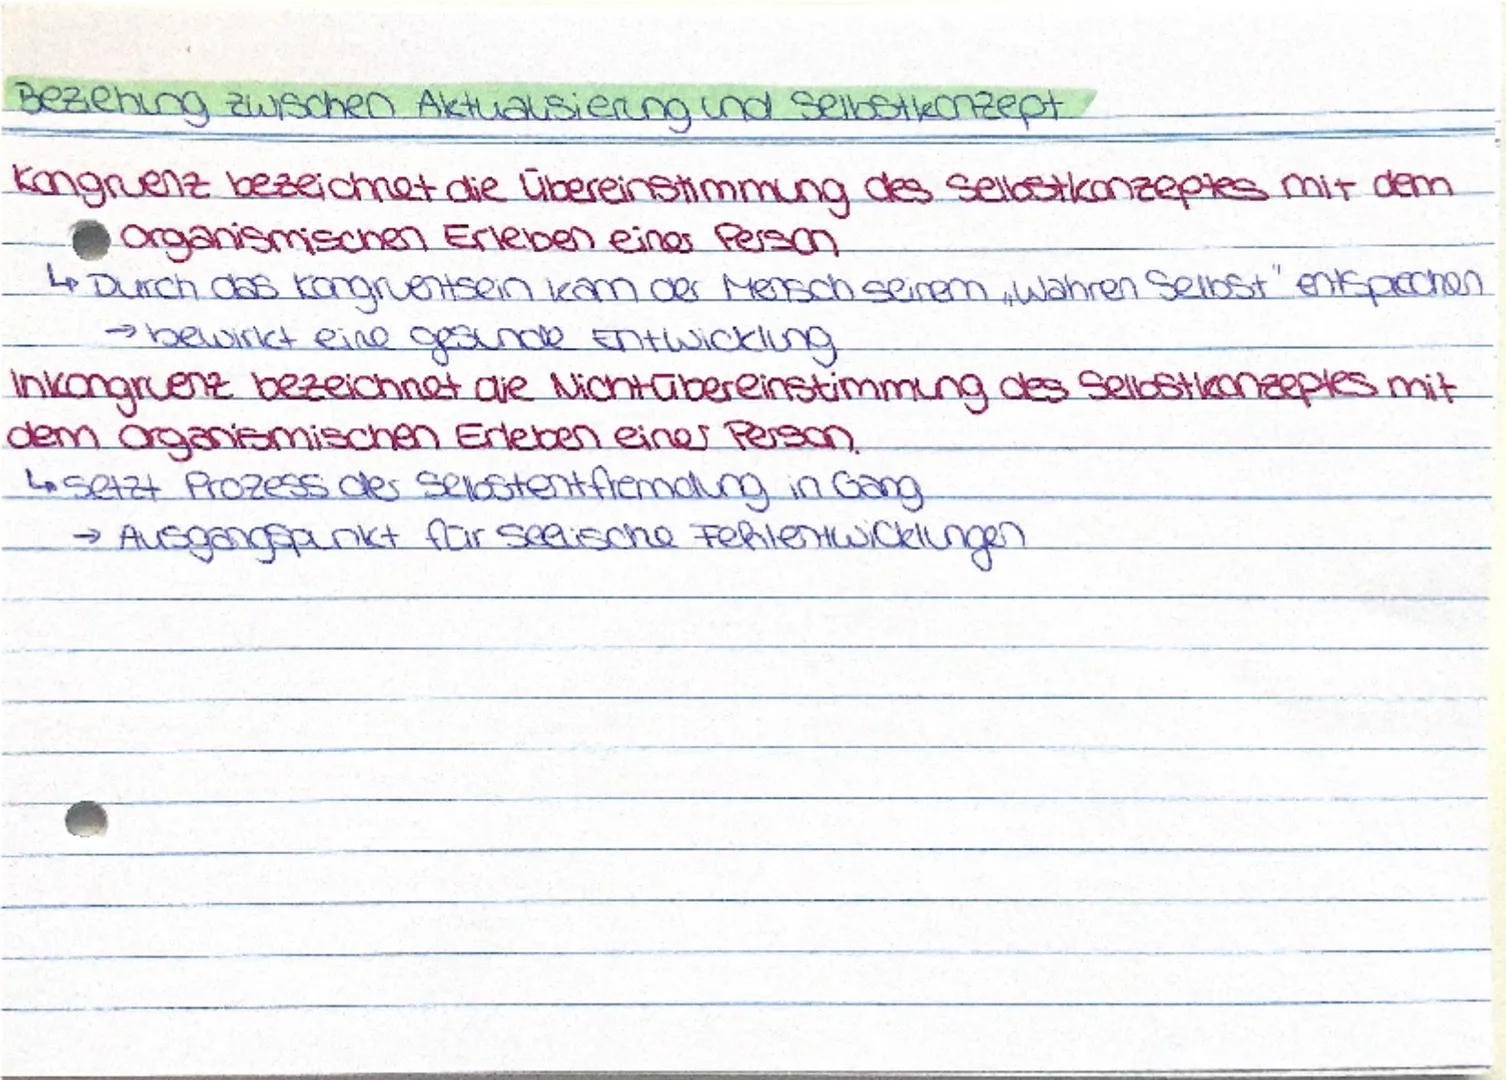 Beziehung zwischen Aktualisierung und Selbstkonzept
Kongruenz bezeichnet die Übereinstimmung des Selbstkonzeptes mit dem
organismischen Erleben einer Person
↳ Durch das Kongruentsein kann der Mensch seinem „Wahren Selbst" entsprechen
→ bewirkt eine gesunde Entwicklung
Inkongruenz bezeichnet die Nichtübereinstimmung des Selbstkonzeptes mit
dem organismischen Erleben einer Person.
↳ setzt Prozess der Selbstentfremdung in Gang
→ Ausgangspunkt für seelische Fehlentwicklungen